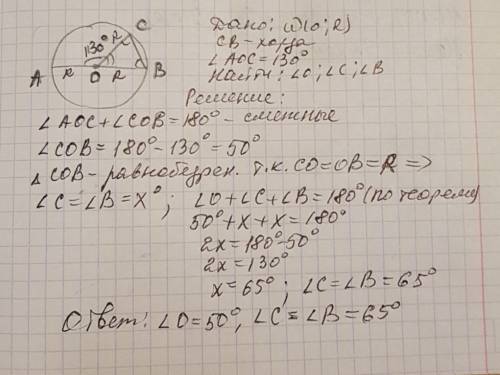 C
130°
R
A R O R B
Дано: ω(O; R)
CB - хорда
∠AOC = 130°
Найти: ∠O; ∠C; ∠B
Решение:
∠AOC + ∠COB = 180° - смежные
∠COB = 180° - 130° = 50°
△COB - равнобедрен. т.к. CO = OB = R =>
∠C = ∠B = x°; ∠O + ∠C + ∠B = 180° (по теореме)
50° + x + x = 180°
2x = 180° - 50°
2x = 130°
x = 65°; ∠C = ∠B = 65°
Ответ: ∠O = 50°, ∠C = ∠B = 65°